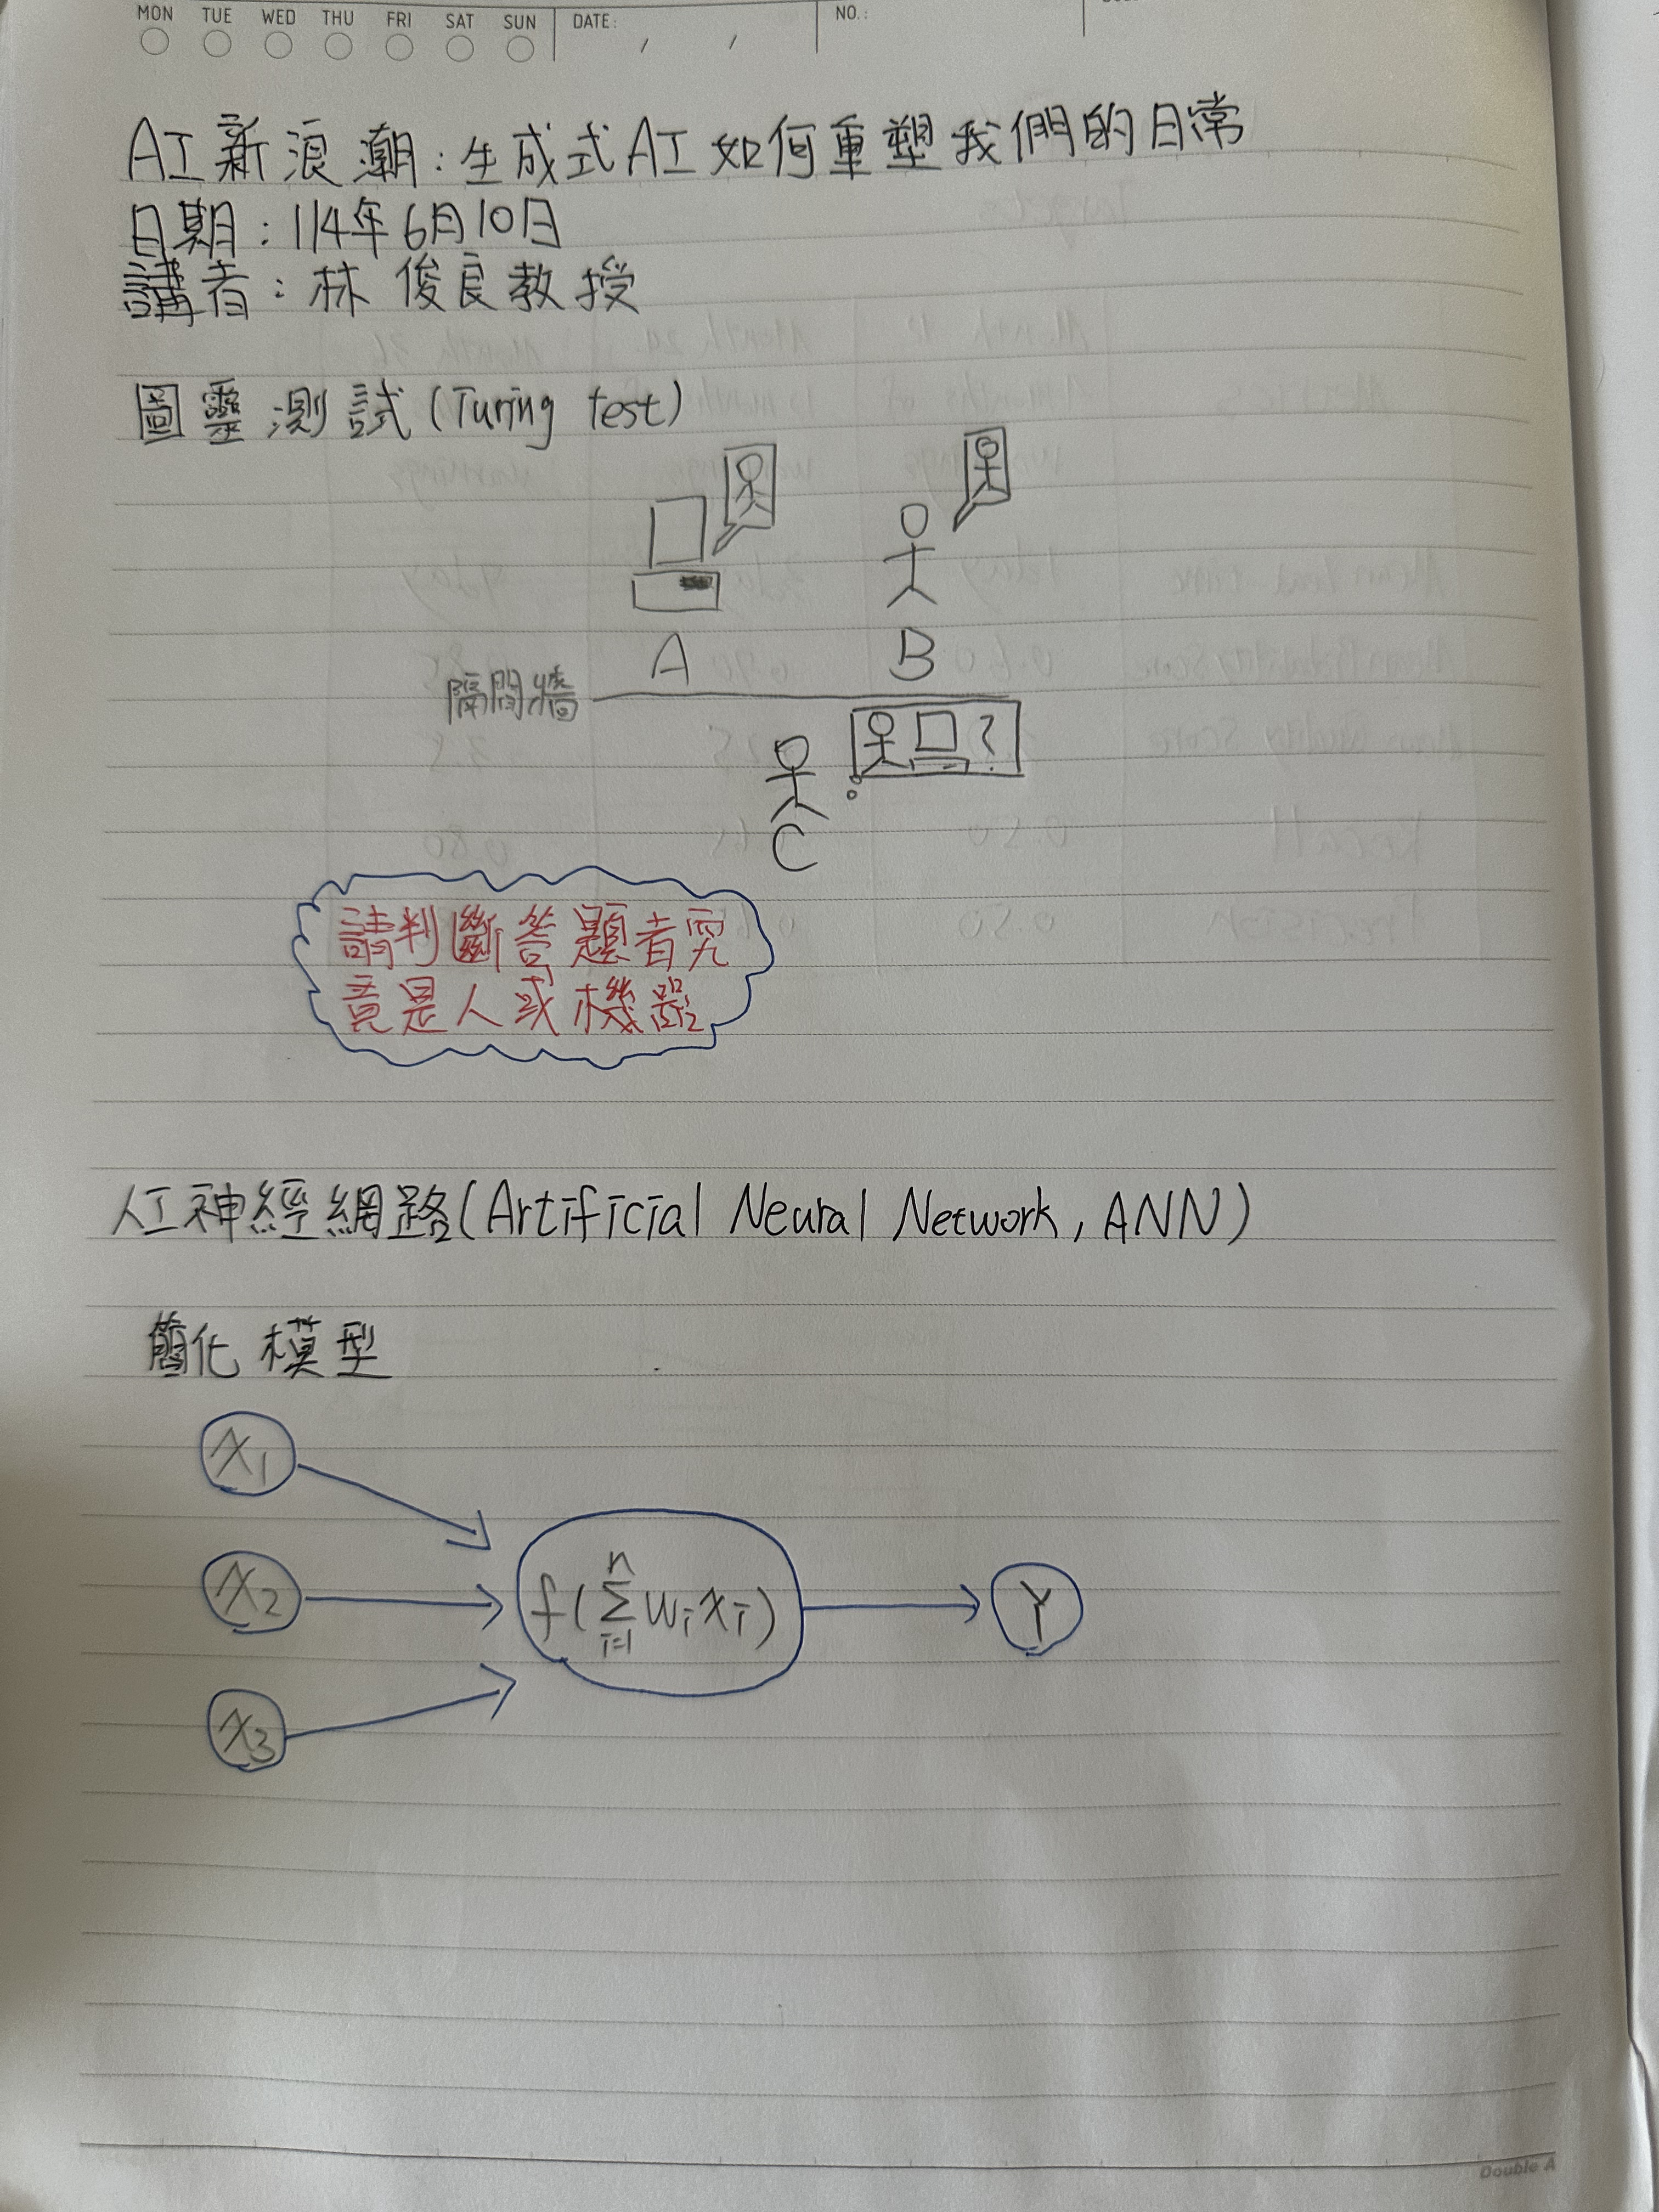 MON TUE WED THU FRI SAT SUN DATE: / / NO.:
AI新浪潮:生成式AI如何重塑我們的日常
日期:114年6月10日
講者:林俊良教授
圖靈測試(Turing test)
A B
隔間牆
?
C
請判斷答題者究
竟是人或機器
人工神經網路(Artificial Neural Network, ANN)
簡化模型
x₁
x₂ f(∑ⁿᵢ₌₁ wᵢxᵢ) Y
x₃
Double A